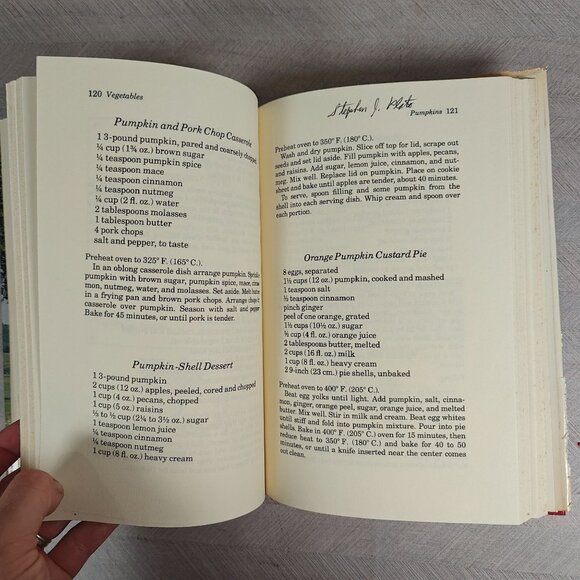 120 Vegetables
Pumpkin and Pork Chop Casserole
1 3-pound pumpkin, pared and coarsely chopped
¼ cup (1¾ oz.) brown sugar
¼ teaspoon pumpkin spice
¼ teaspoon mace
¼ teaspoon cinnamon
¼ teaspoon nutmeg
¼ cup (2 fl. oz.) water
2 tablespoons molasses
1 tablespoon butter
4 pork chops
salt and pepper, to taste
Preheat oven to 325° F. (165° C.).
In an oblong casserole dish arrange pumpkin.
pumpkin with brown sugar, pumpkin spice, mace,
mon, nutmeg, water, and molasses. Set aside. Melt
in a frying pan and brown pork chops. Arrange
casserole over pumpkin. Season with salt and
Bake for 45 minutes, or until pork is tender.
Pumpkin-Shell Dessert
1 3-pound pumpkin
2 cups (12 oz.) apples, peeled, cored and chopped
1 cup (4 oz.) pecans, chopped
1 cup (5 oz.) raisins
⅓ to ½ cup (2¼ to 3½ oz.) sugar
1 teaspoon lemon juice
¼ teaspoon cinnamon
¼ teaspoon nutmeg
1 cup (8 fl. oz.) heavy cream
Stephen J.
Pumpkins 121
Preheat oven to 350° F. (180° C.).
Wash and dry pumpkin. Slice off top for lid, scrape out
seeds and set lid aside. Fill pumpkin with apples, pecans,
and raisins. Add sugar, lemon juice, cinnamon, and nut-
meg. Mix well. Replace lid on pumpkin. Place on cookie
sheet and bake until apples are tender, about 40 minutes.
To serve, spoon filling and some pumpkin from the
shell into each serving dish. Whip cream and spoon over
each portion.
Orange Pumpkin Custard Pie
8 eggs, separated
1½ cups (12 oz.) pumpkin, cooked and mashed
1 teaspoon salt
½ teaspoon cinnamon
pinch ginger
peel of one orange, grated
1½ cups (10½ oz.) sugar
½ cup (4 fl. oz.) orange juice
2 tablespoons butter, melted
2 cups (16 fl. oz.) milk
1 cup (8 fl. oz.) heavy cream
2 9-inch (23 cm.) pie shells, unbaked
Preheat oven to 400° F. (205° C.).
Beat egg yolks until light. Add pumpkin, salt, cinna-
mon, ginger, orange peel, sugar, orange juice, and melted
butter. Mix well. Stir in milk and cream. Beat egg whites
until stiff and fold into pumpkin mixture. Pour into pie
shells. Bake in 400° F. (205° C.) oven for 15 minutes, then
reduce heat to 350° F. (180° C.) and bake for 40 to 50
minutes, or until a knife inserted near the center comes
out clean.